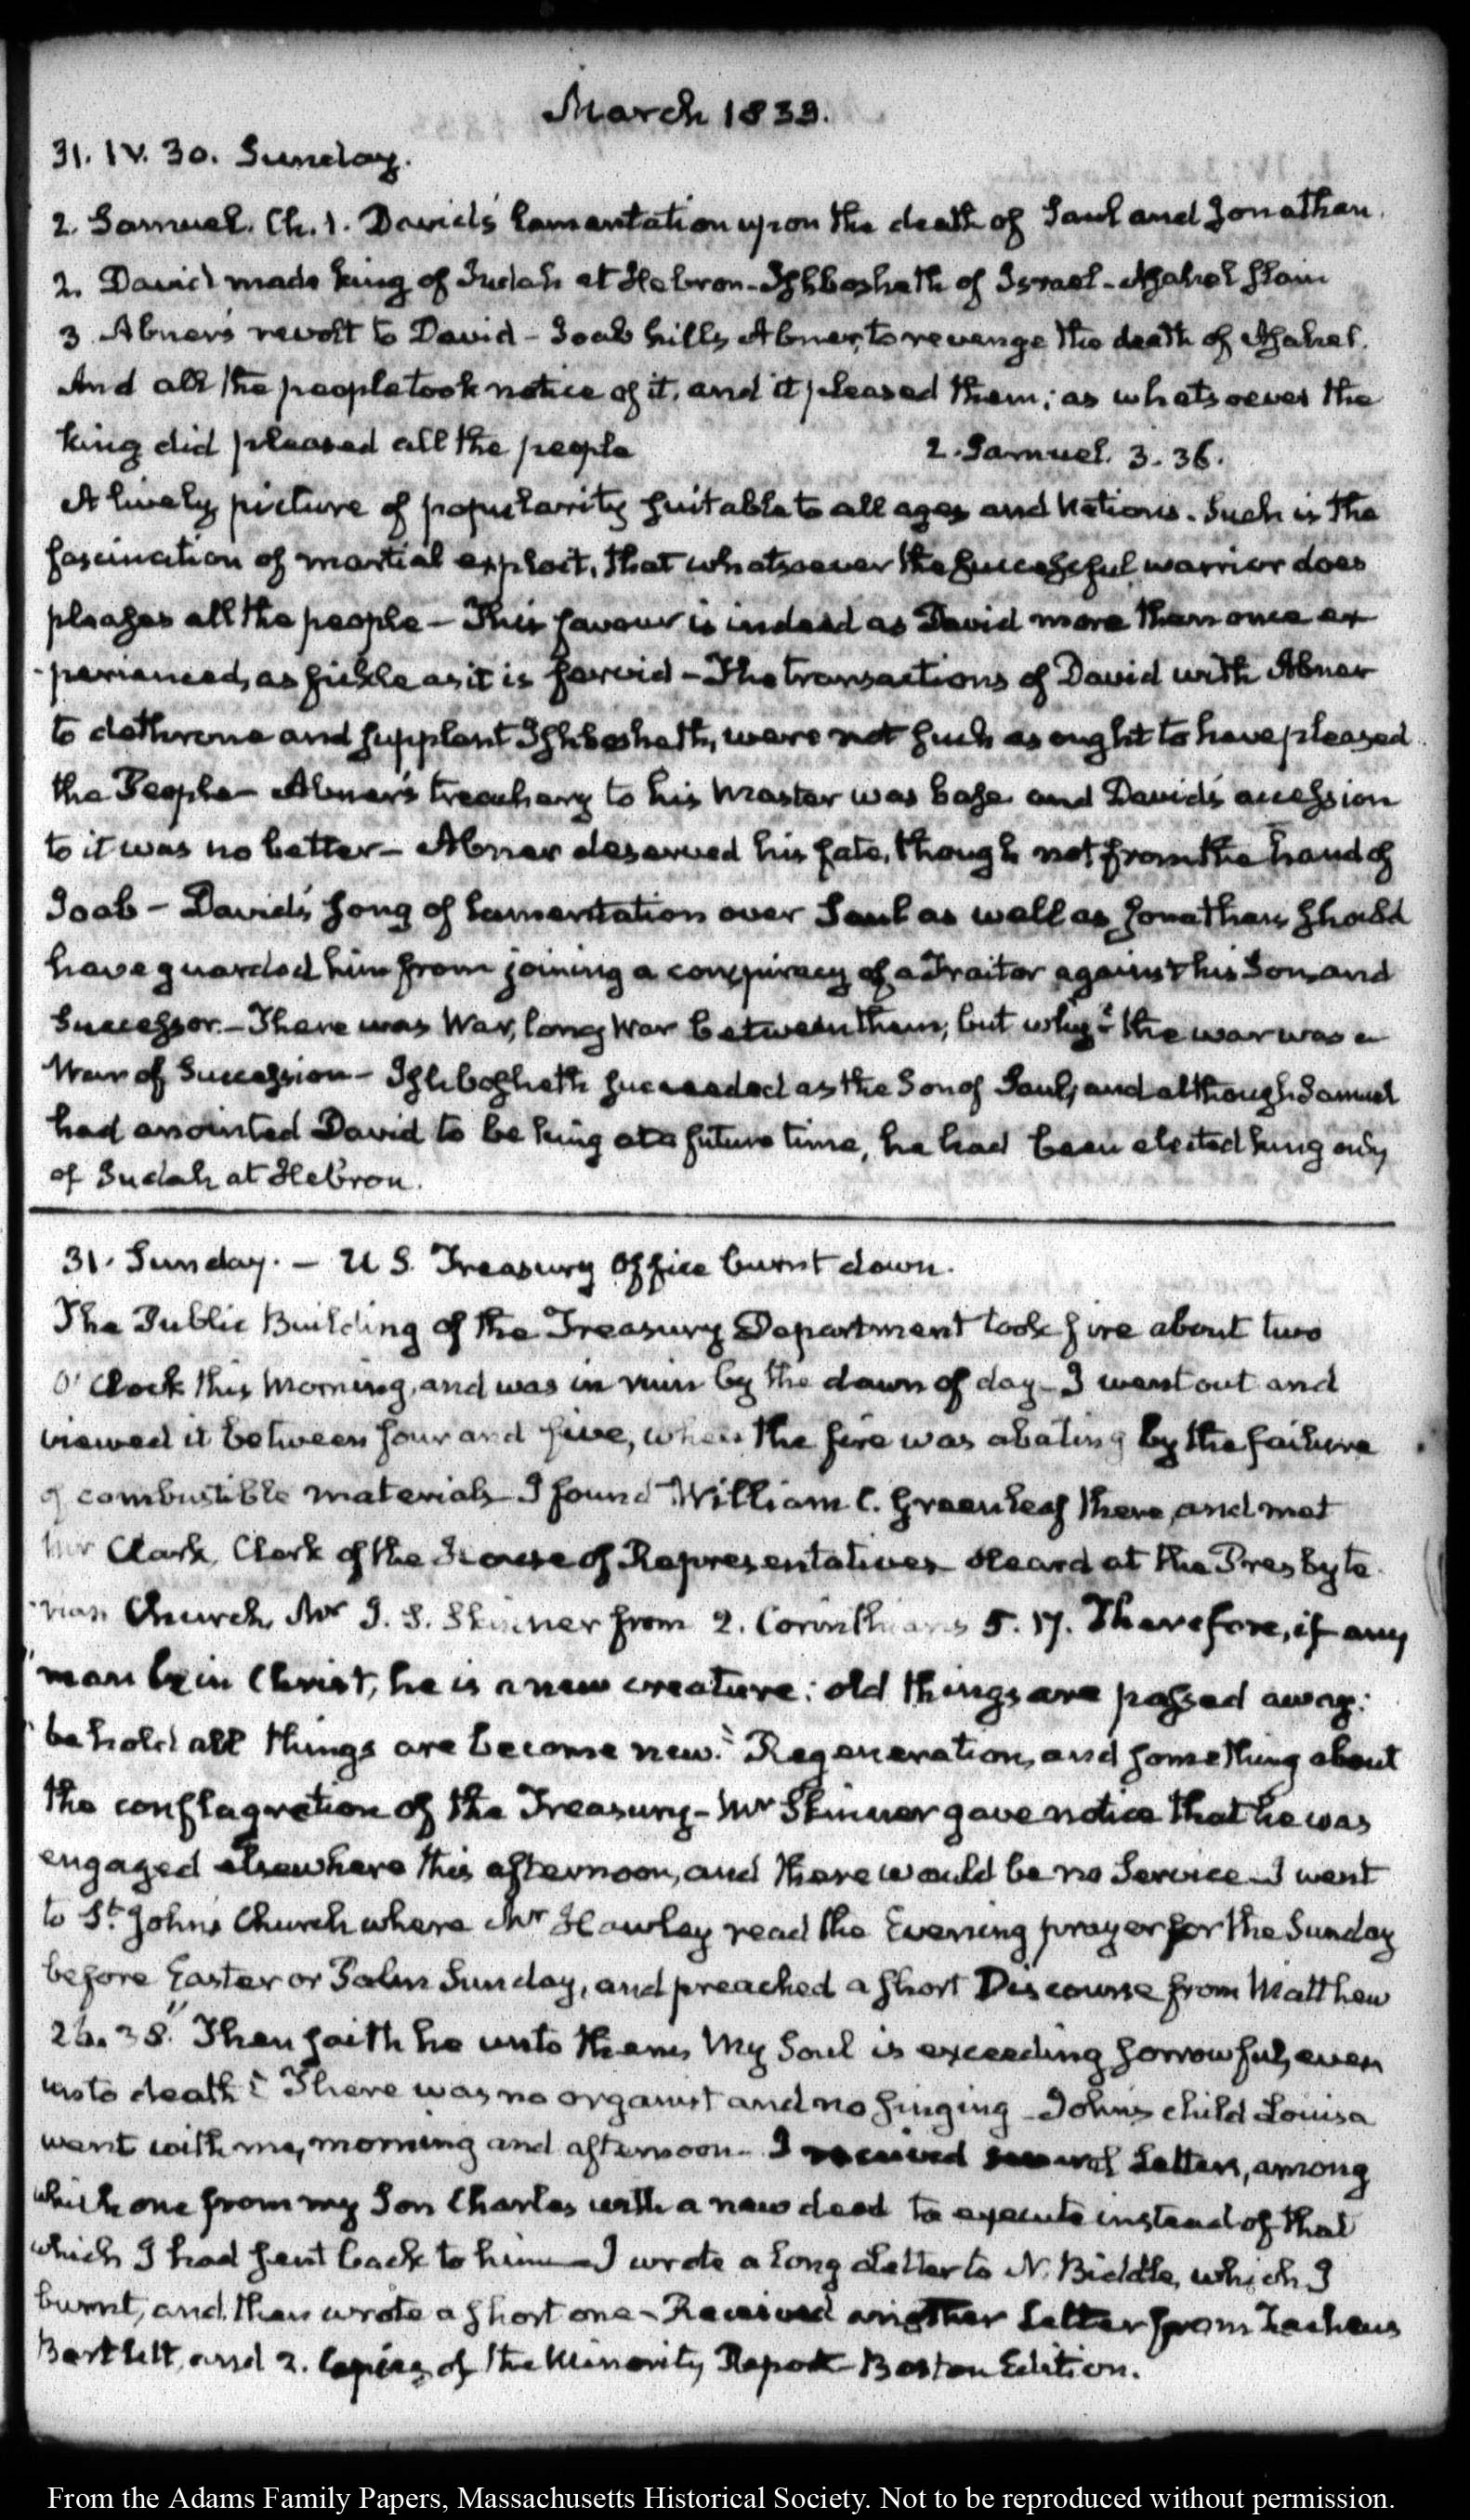 March 1833.
31. IV. 30. Sunday.
2. Samuel. Ch. 1. David's Lamentation upon the death of Saul and Jonathan.
2. David made king of Judah at Hebron - Ishbosheth of Israel - Asahel slain
3. Abner's revolt to David - Joab kills Abner, to revenge the death of Asahel.
And all the people took notice of it, and it pleased them; as whatsoever the
king did pleased all the people 2. Samuel. 3. 36.
A lively picture of popularity suitable to all ages and Nations. Such is the
fascination of martial exploit, that whatsoever the successful warrior does
pleases all the people - This favour is indeed as David more than once ex
-perienced, as fickle as it is fervid - The transactions of David with Abner
to dethrone and supplant Ishbosheth, were not such as ought to have pleased
the People - Abner's treachery to his Master was base and David's accession
to it was no better - Abner deserved his fate, though not from the hand of
Joab - David's song of Lamentation over Saul as well as Jonathan should
have guarded him from joining a conspiracy of a Traitor against his Son, and
Successor. - There was War, long War between them; but why? the war was a
War of Succession - Ishbosheth succeeded as the Son of Saul, and although Samuel
had anointed David to be king at a future time, he had been elected king only
of Judah at Hebron.
31. Sunday. - U S. Treasury Office burnt down.
The Public Building of the Treasury Department took fire about two
O'Clock this Morning, and was in ruin by the dawn of day - I went out and
viewed it between four and five, when the fire was abating by the failure
of combustible materials - I found William C. Greenleaf there, and met
Mr Clark, Clerk of the House of Representatives - Heard at the Presbyte
-rian Church, Mr I. S. Skinner from 2. Corinthians 5. 17. Therefore, if any
"man be in Christ, he is a new creature: old things are passed away:
"behold all things are become new." Regeneration, and something about
the conflagration of the Treasury - Mr Skinner gave notice that he was
engaged elsewhere this afternoon, and there would be no Service - I went
to St. John's Church where Mr Hawley read the Evening prayer for the Sunday
before Easter or Palm Sunday, and preached a short Discourse from Matthew
26. 38. "Then saith he unto them, My Soul is exceeding sorrowful, even
unto death" There was no organist and no singing - John's child Louisa
went with me, morning and afternoon - I received several Letters, among
which one from my Son Charles with a new deed to execute instead of that
which I had sent back to him - I wrote a long Letter to N. Biddle, which I
burnt, and then wrote a short one - Received another Letter from Zacheus
Bartlett, and 2. Copies of the Minority Report - Boston Edition.
From the Adams Family Papers, Massachusetts Historical Society. Not to be reproduced without permission.